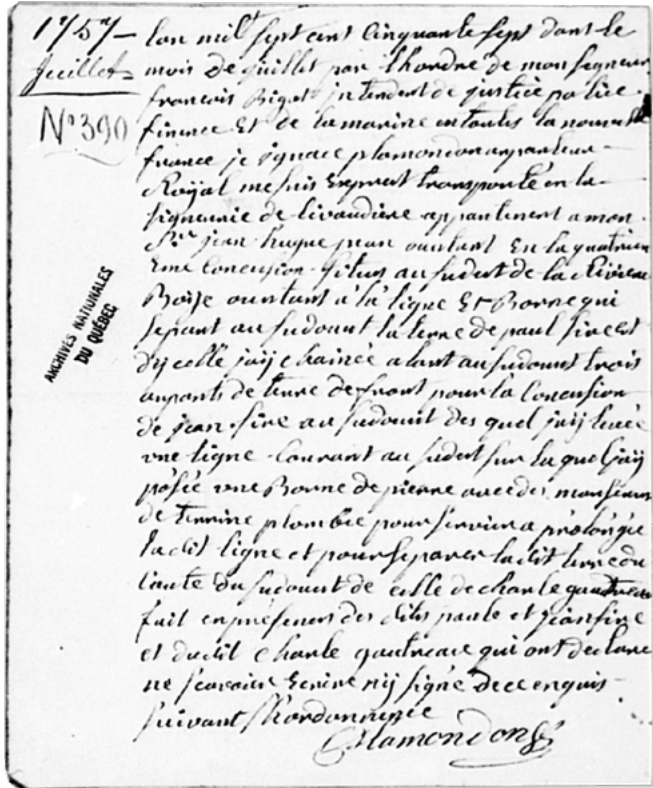 1757
Juillet
N° 390
ARCHIVES NATIONALES
DU QUÉBEC
Lan mil sept cent Cinquante sept dans le
mois de juillet par lhordre de monseigneur
francois Bigot intendent de justice police
finence Et de la marine en toutes la nouvelle
france je ignace plamondon arpanteur
Royal me suis Exprest transporté en la
signeurie de livaudiere appartenent a mon
Sr jean hugue pean
Eme Concension situee au sudest de la Riviere
Boyse a la ligne Et Borne qui
separt au sudouest la terre de paul sire et
dycelle jaij chainée alant au sudouest trois
arpants de terre de front pour la Concension
de jean sire au sudouest des quel jaij tirée
une ligne Courant au sudest sur laquel jaij
posée une Borne de pierre avec des morceaux
de terrine plombée pour servire a prolongée
ladit ligne et pour separer ladit terre du
Coute du sudouest de celle de charle gautreau
fait en presences des dits paule et jean sire
et dudit charle gautreau qui ont declaré
ne scavoire Ecrire nij signé de ce enquis
suivant lhordonnence
Plamondon